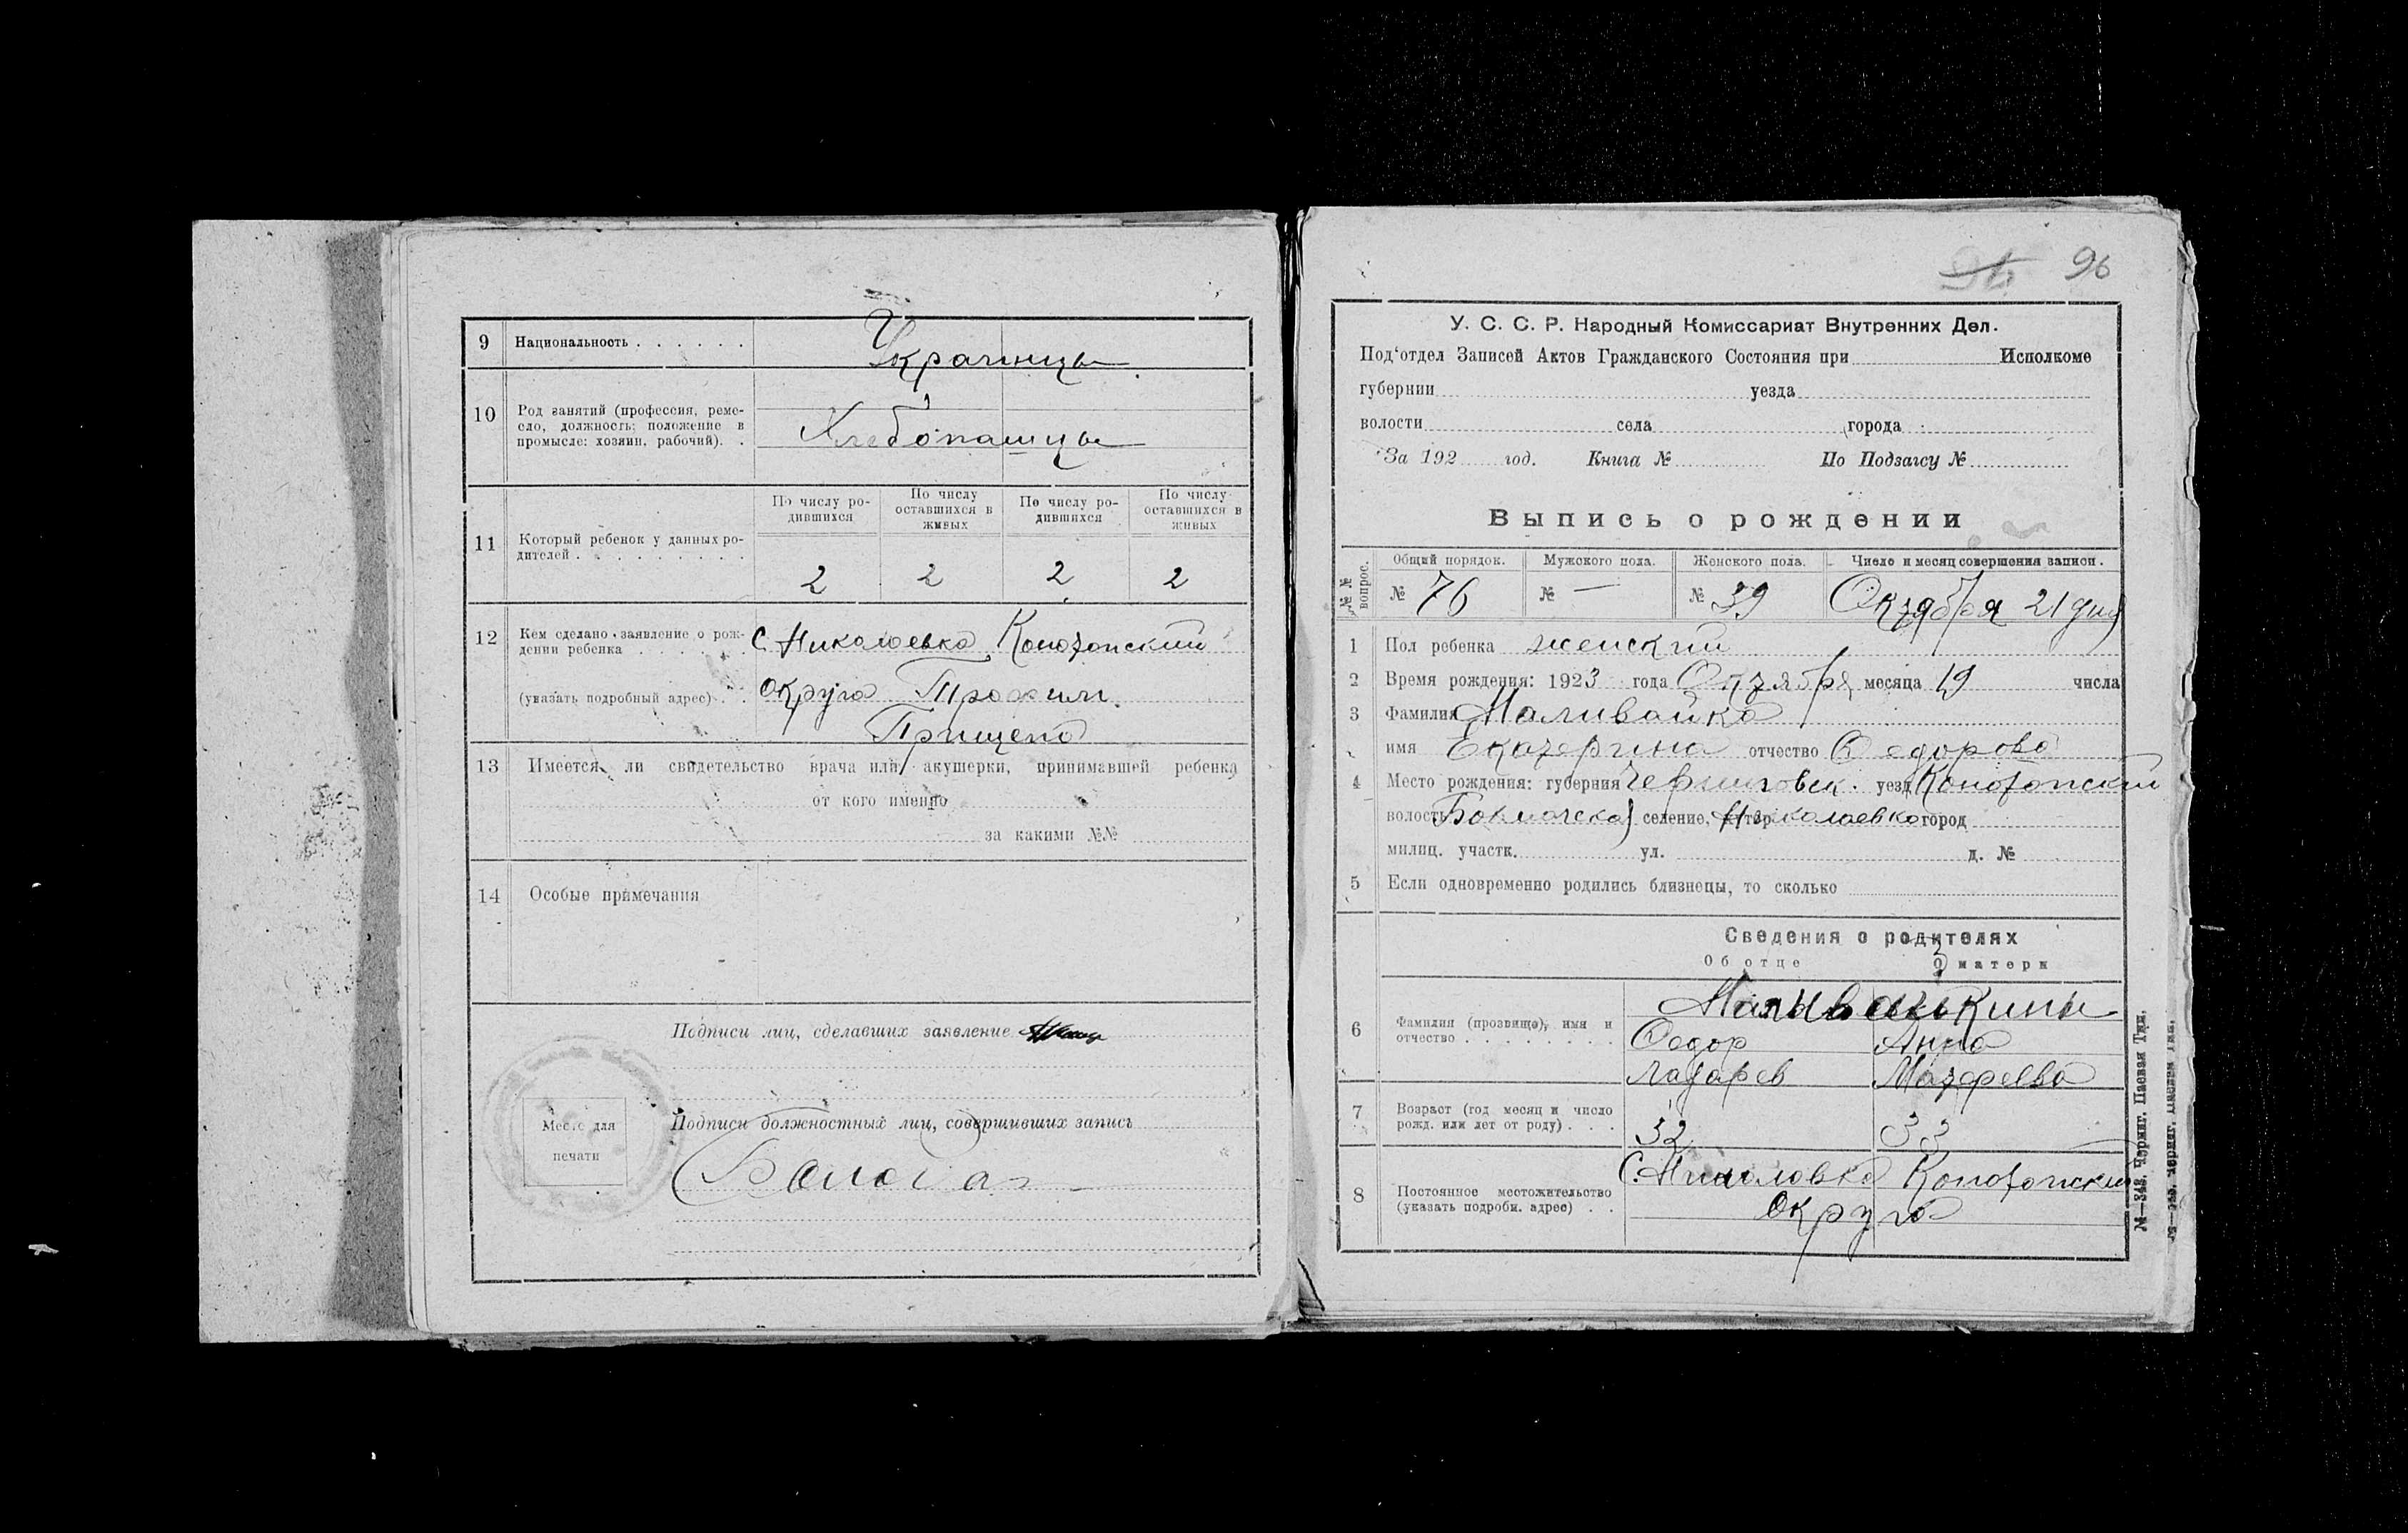 9 Национальность . . . . . . Украинцы
10 Род занятий (профессия, реме-
сло, должность: положение в
промысле: хозяин, рабочий). .
Хлебопашцы
По числу ро-
дившихся
По числу
оставшихся в
живых
По числу ро-
дившихся
По числу
оставшихся в
живых
11 Который ребенок у данных ро-
дителей . . . . . . . . .
2 2 2 2
12 Кем сделано заявление о рож-
дении ребенка . . . . . .
с. Николаевка Конотопский
(указать подробный адрес) . .
округа Трофим
Прищепа
13 Имеется ли свидетельство врача или акушерки, принимавшей ребенка
от кого именно
за какими №№
14 Особые примечания
Подписи лиц, сделавших заявление
Место для
печати
Подписи должностных лиц, совершивших запись
96
У. С. С. Р. Народный Комиссариат Внутренних Дел.
Под‘отдел Записей Актов Гражданского Состояния при Исполкоме
губернии уезда
волости села города
За 192 год. Книга № По Подзагсу №
Выпись о рождении
№№ вопрос.
Общий порядок. Мужского пола. Женского пола. Число и месяц совершения записи.
№ 76 № — № 39 Октября 21 дня
1 Пол ребенка женский
2 Время рождения: 1923 года Октября месяца 19 числа
3 Фамилия Наливайко
имя Екатерина отчество Федорова
4 Место рождения: губерния Черниговск. уезд Конотопский
волость Бахмачская селение, хутор Николаевка город
милиц. участк. ул. д. №
5 Если одновременно родились близнецы, то сколько
Сведения о родителях
Об отце О матери
6 Фамилия (прозвище), имя и
отчество . . . . . . . .
Федор Анна
Лазарев Матфеева
7 Возраст (год месяц и число
рожд. или лет от роду) . . .
32 33
8 Постоянное местожительство
(указать подробн. адрес) . .
С. Николовка Конотопский
Округа
№—343. Черниг. Паевая Тип.